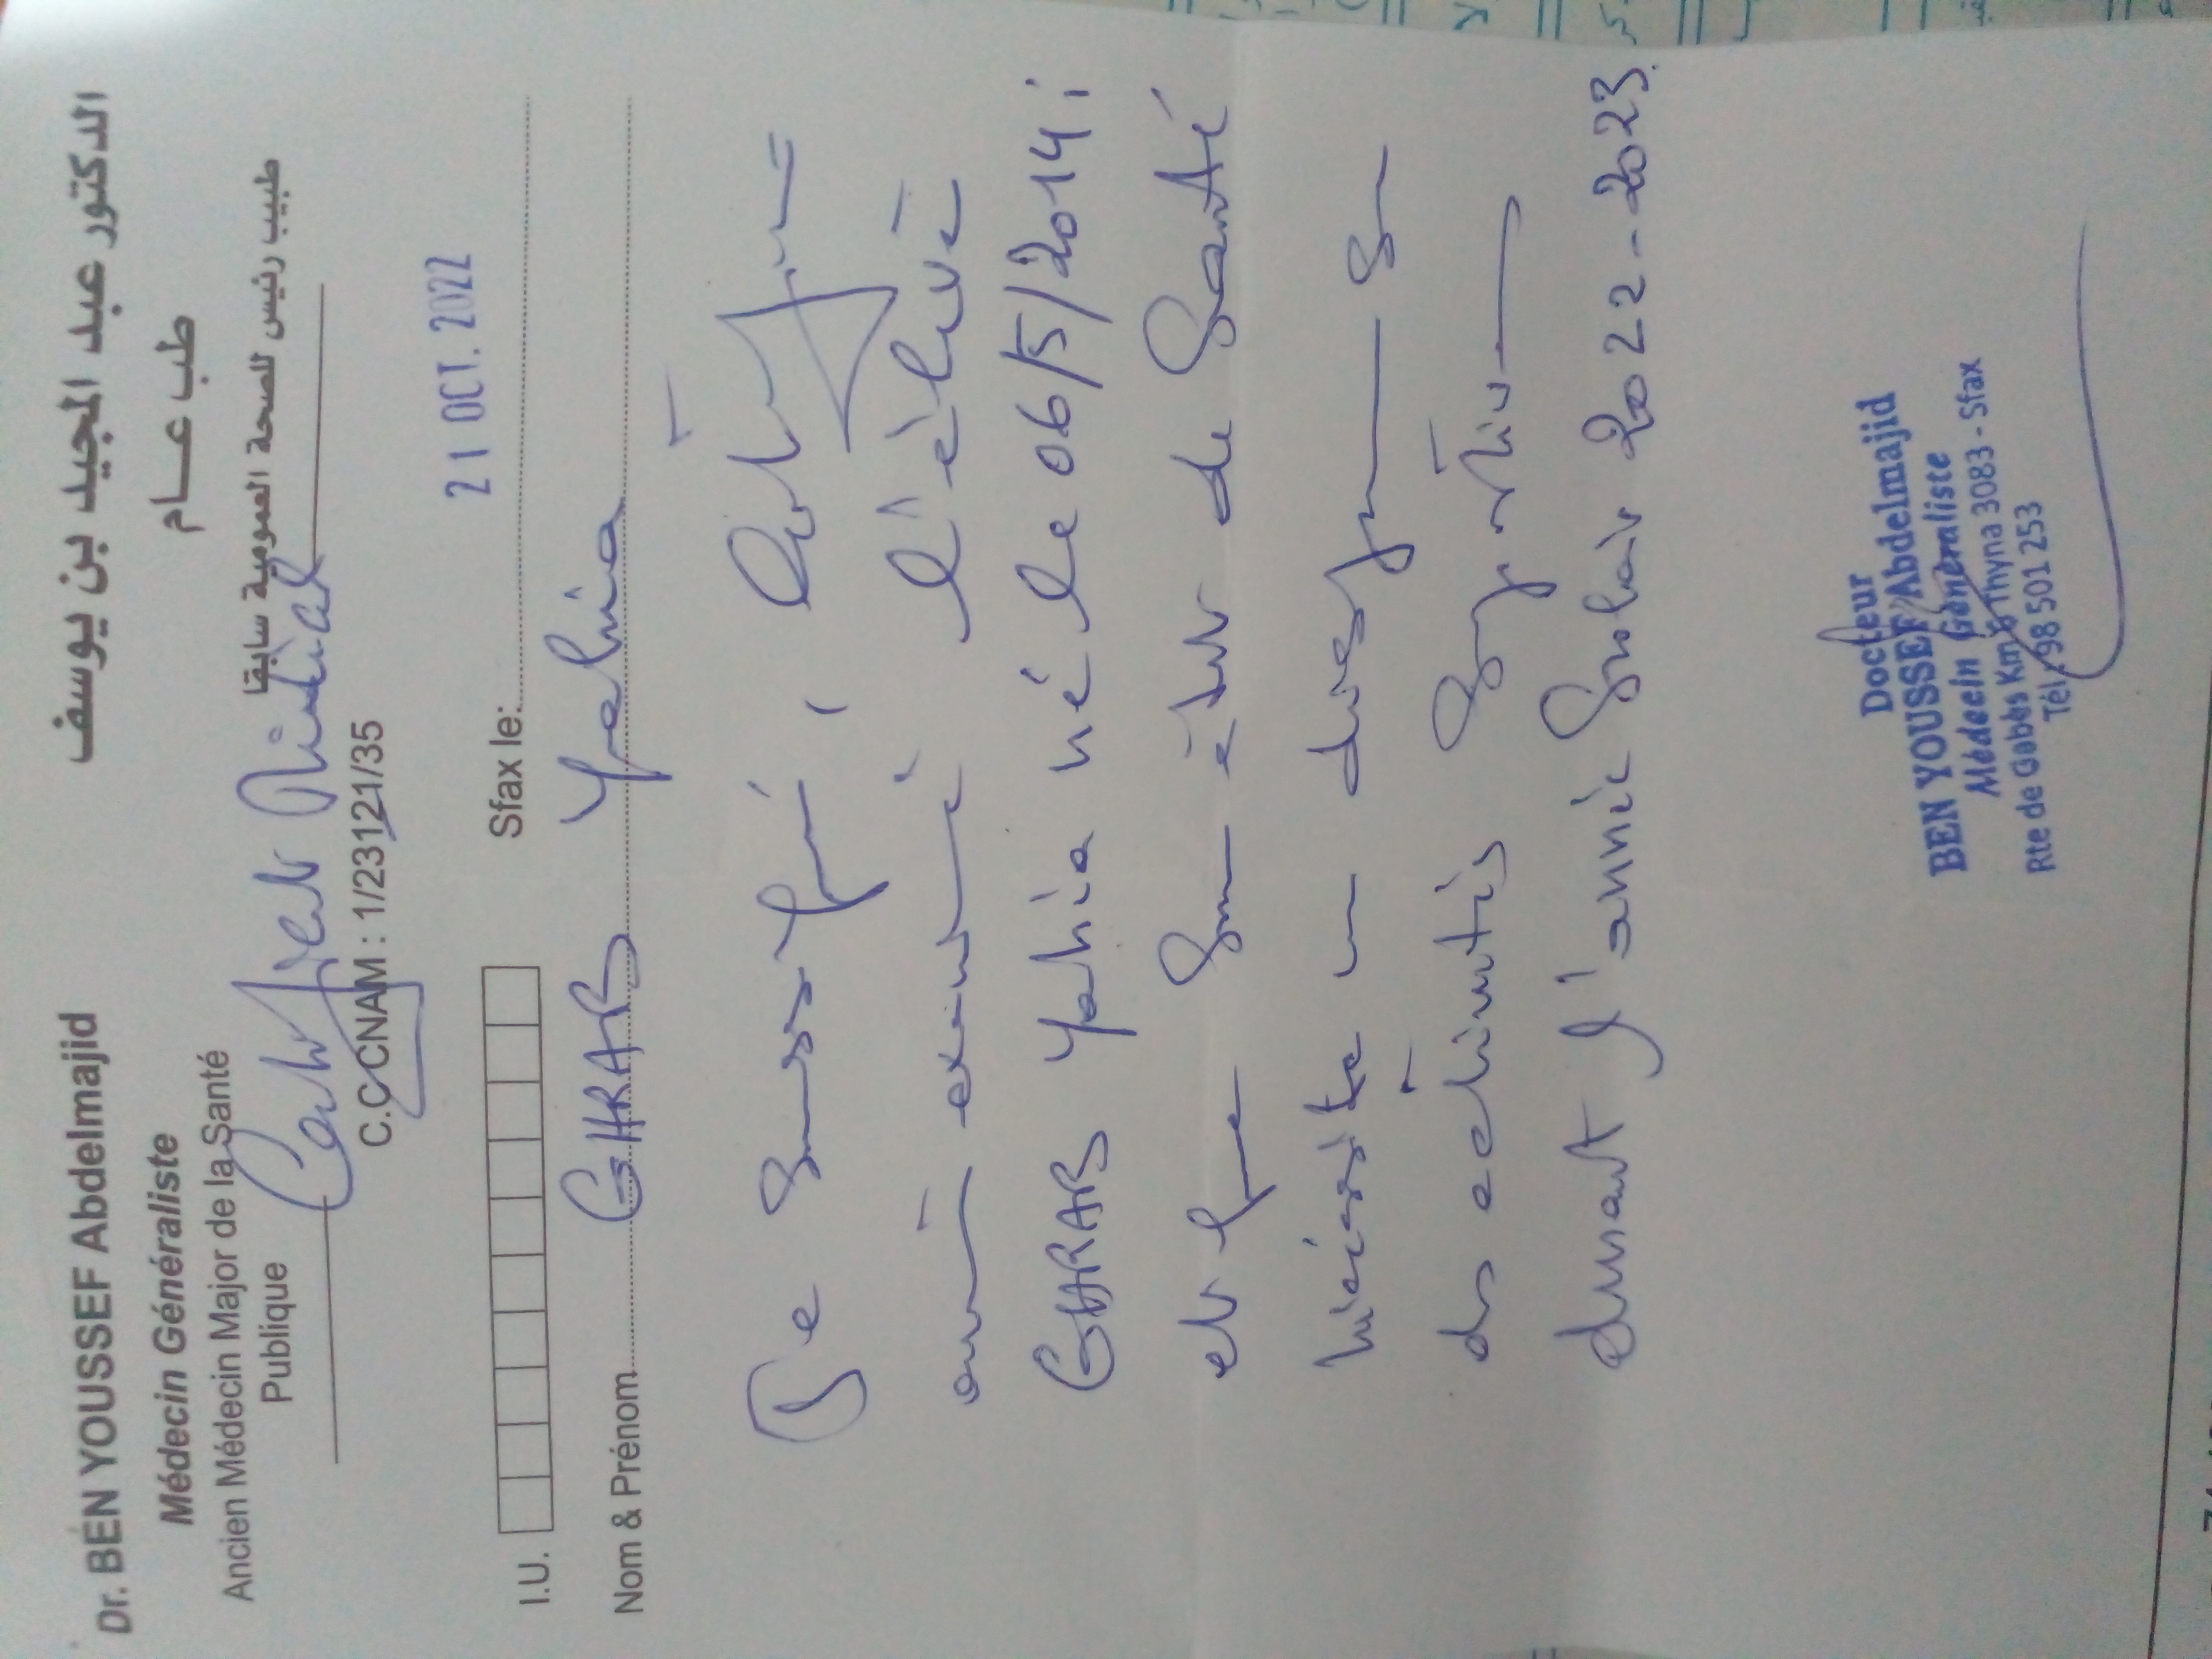 Dr. BEN YOUSSEF Abdelmajid
Médecin Généraliste
Ancien Médecin Major de la Santé
Publique
الدكتور عبد المجيد بن يوسف
طب عــام
طبيب رئيس للصحة العمومية سابقا
Certificat Médical
C.C CNAM : 1/23121/35
21 OCT. 2022
I.U.
Sfax le:
Nom & Prénom GHRAB Yahia
Je soussigné, certifie
avoir examiné l'élève
GHRAB Yahia né le 06/5/2014
et que son état de Santé
nécessite une dispense
des activités sportives
durant l'année scolaire 2022-2023.
Docteur
BEN YOUSSEF Abdelmajid
Médecin Généraliste
Rte de Gabès Km 6 Thyna 3083 - Sfax
Tél : 98 501 253